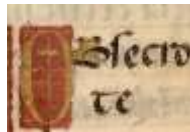 Obsecro
te